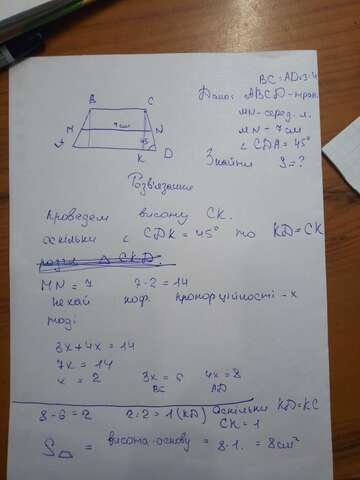 BC:AD=3:4
Дано: ABCD-трап.
MN-серед. л.
MN-7см
∠CDA=45°
Знайти S=?
B C
M 7см N
A K 45 D
Розв'язання
Проведем висоту CK.
оскільки ∠ CDK=45° то KD=CK
розгл △ CKD.
MN=7 7·2=14
нехай коф. пропорційності-x
тоді:
3x+4x=14
7x=14
x=2 3x=6 4x=8
BC AD
8-6=2 2:2=1(KD) Оскільки KD=KC
CK=1
S△ = висота·основу = 8·1. = 8см²